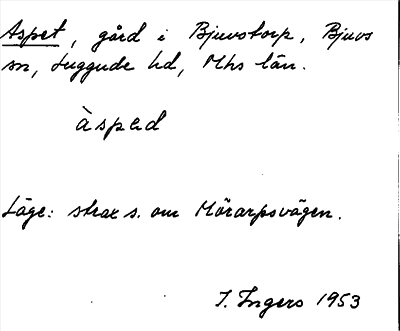 Aspet, gård i Bjuvstorp, Bjuvs
sn, Luggude hd, Mhs län.
àspəd
Läge: strax s. om Mörarpsvägen.
I. Ingers 1953